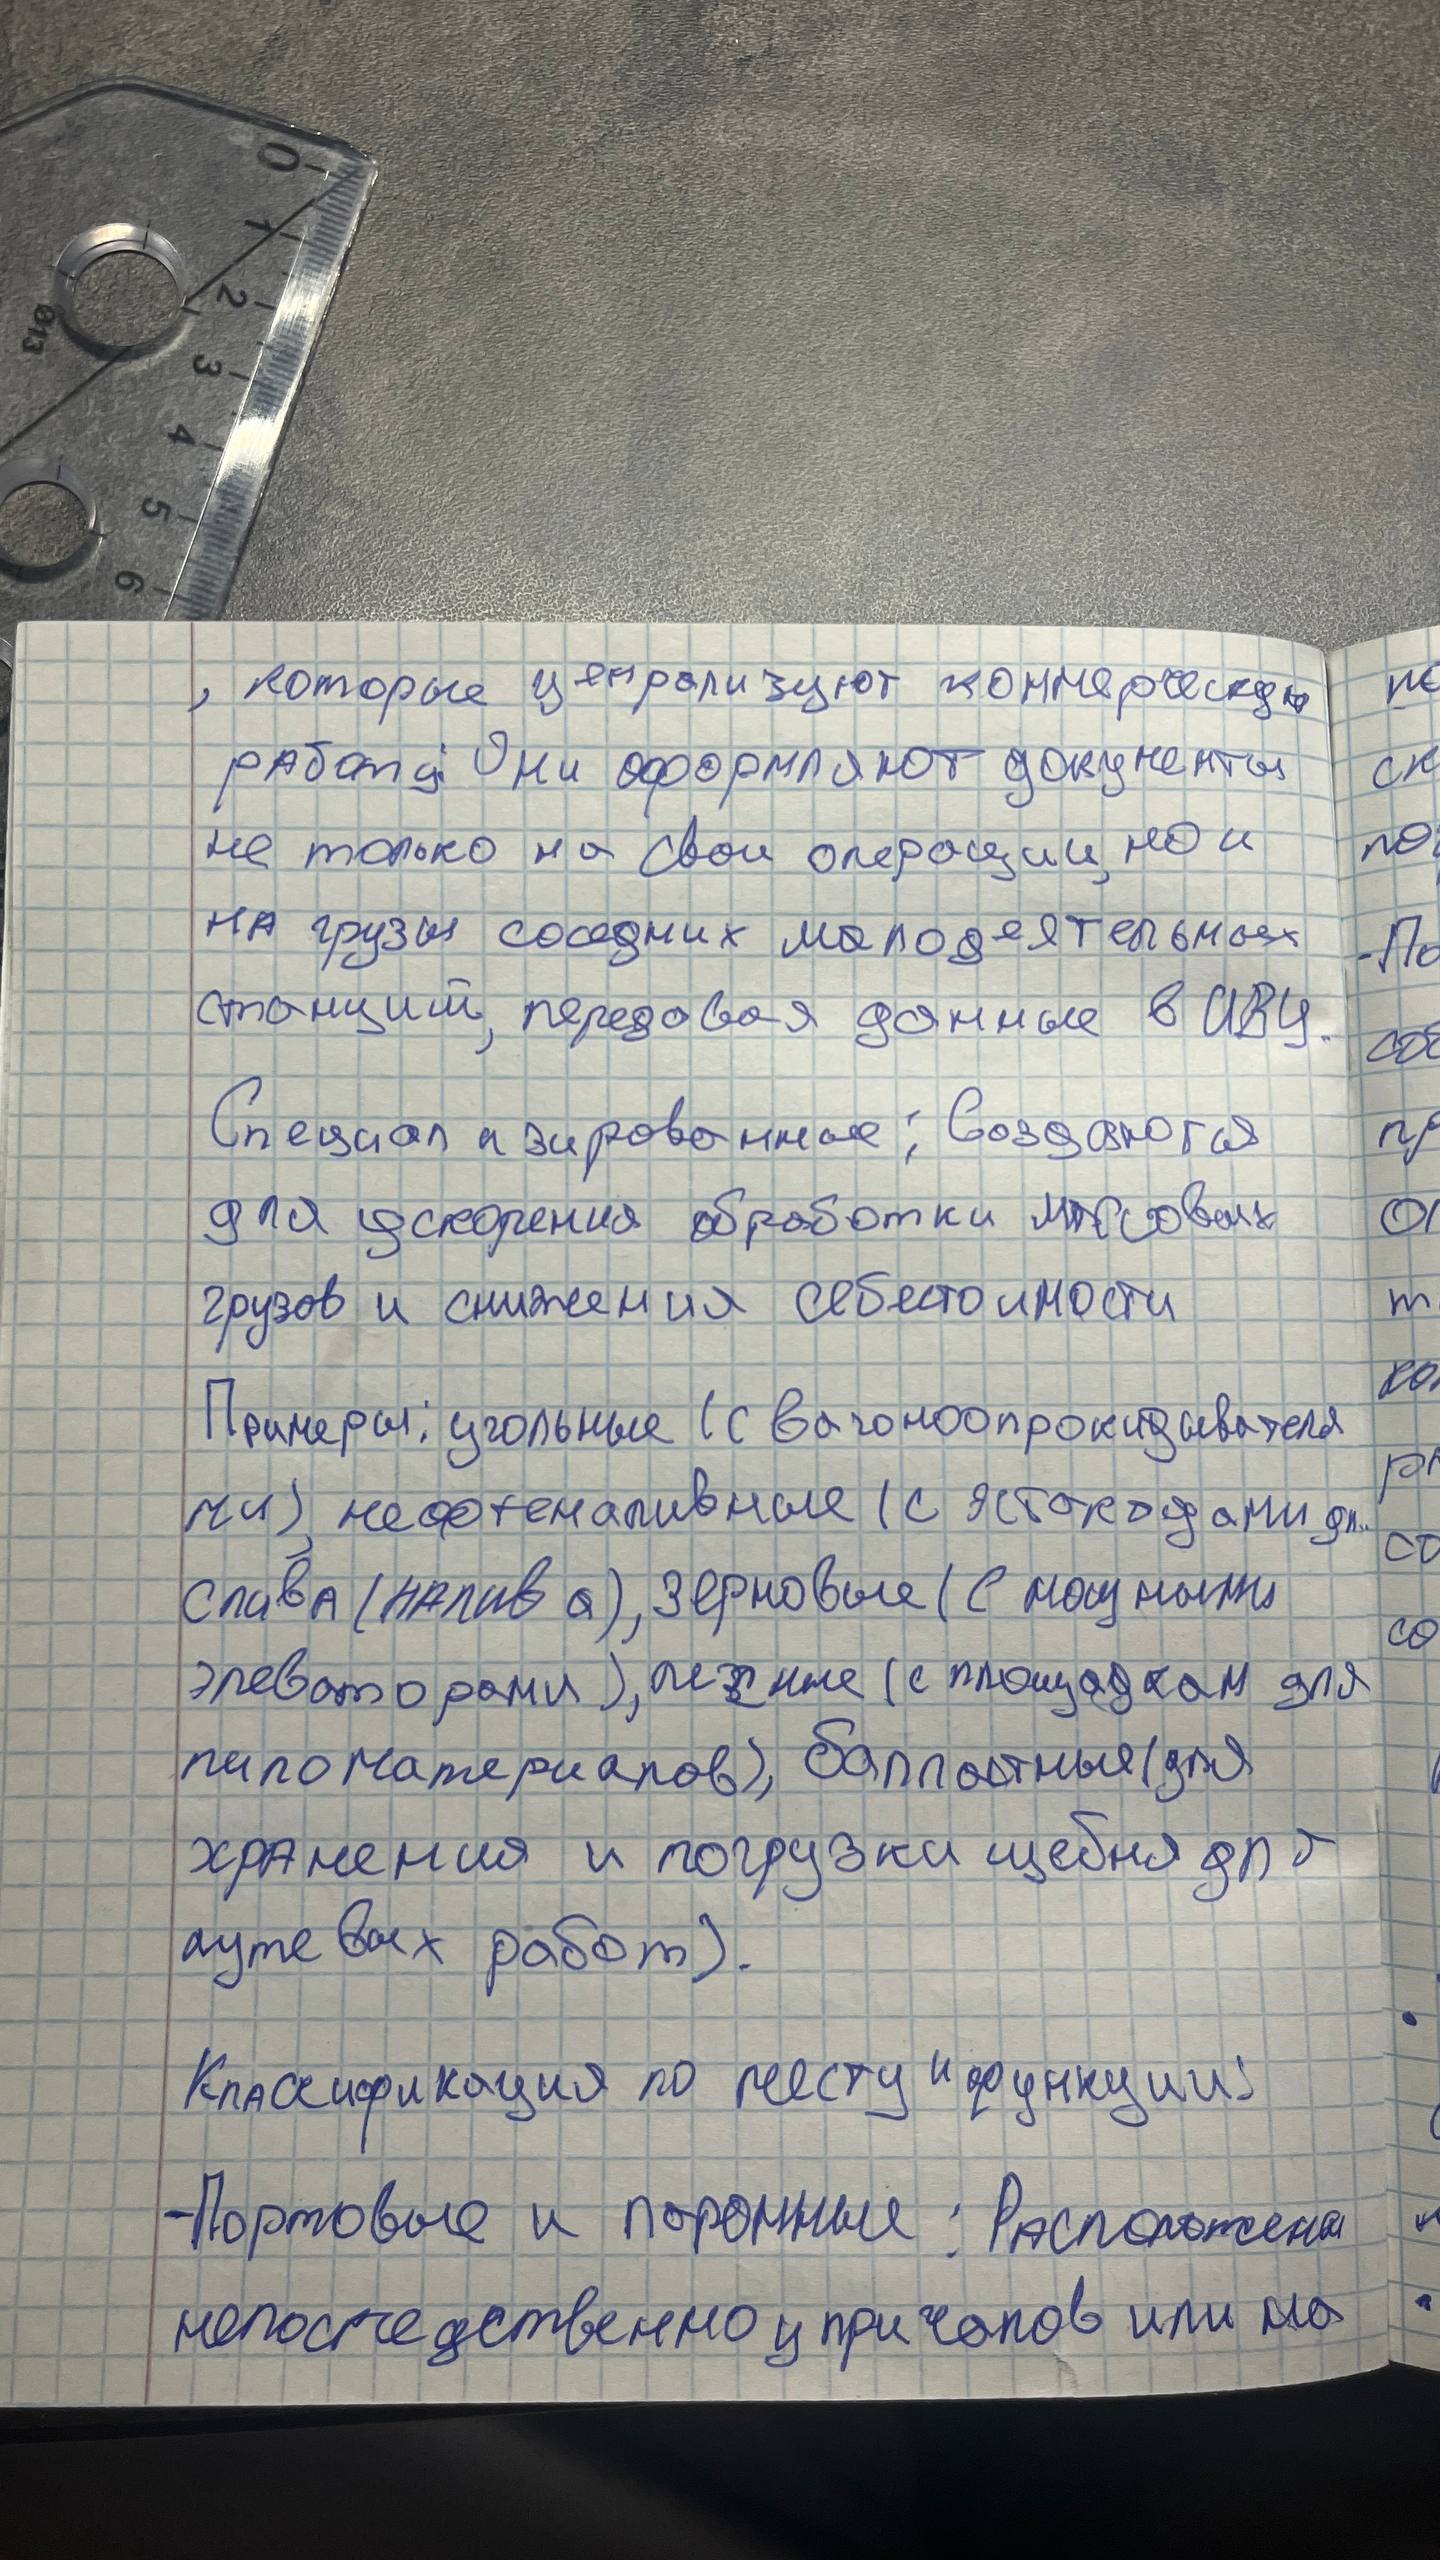 , которые ценрализуют коммерческую
работу: Они оформляют документы
не только на свои операции, но и
на грузы соседних малодеятельных
станций, передавая данные в ИВЦ.
Специализированные: Создаются
для ускорения обработки массовых
грузов и снижения себестоимости
Примеры: угольные (с вагоноопрокидывателя
ми), нефтеналивные (с эстокадами дл..
слива (налива), зерновые (с мощными
элеваторами), лесные (с площадкам для
пиломатериалов), балластные (для
хранения и погрузки щебня для
путевых работ).
Классификация по месту и функции:
-Портовые и паромные: Расположены
непосредственно у причалов или на
0
1
2
3
4
5
6
Ø13
по
ск
-По
соб
пр
ко
со